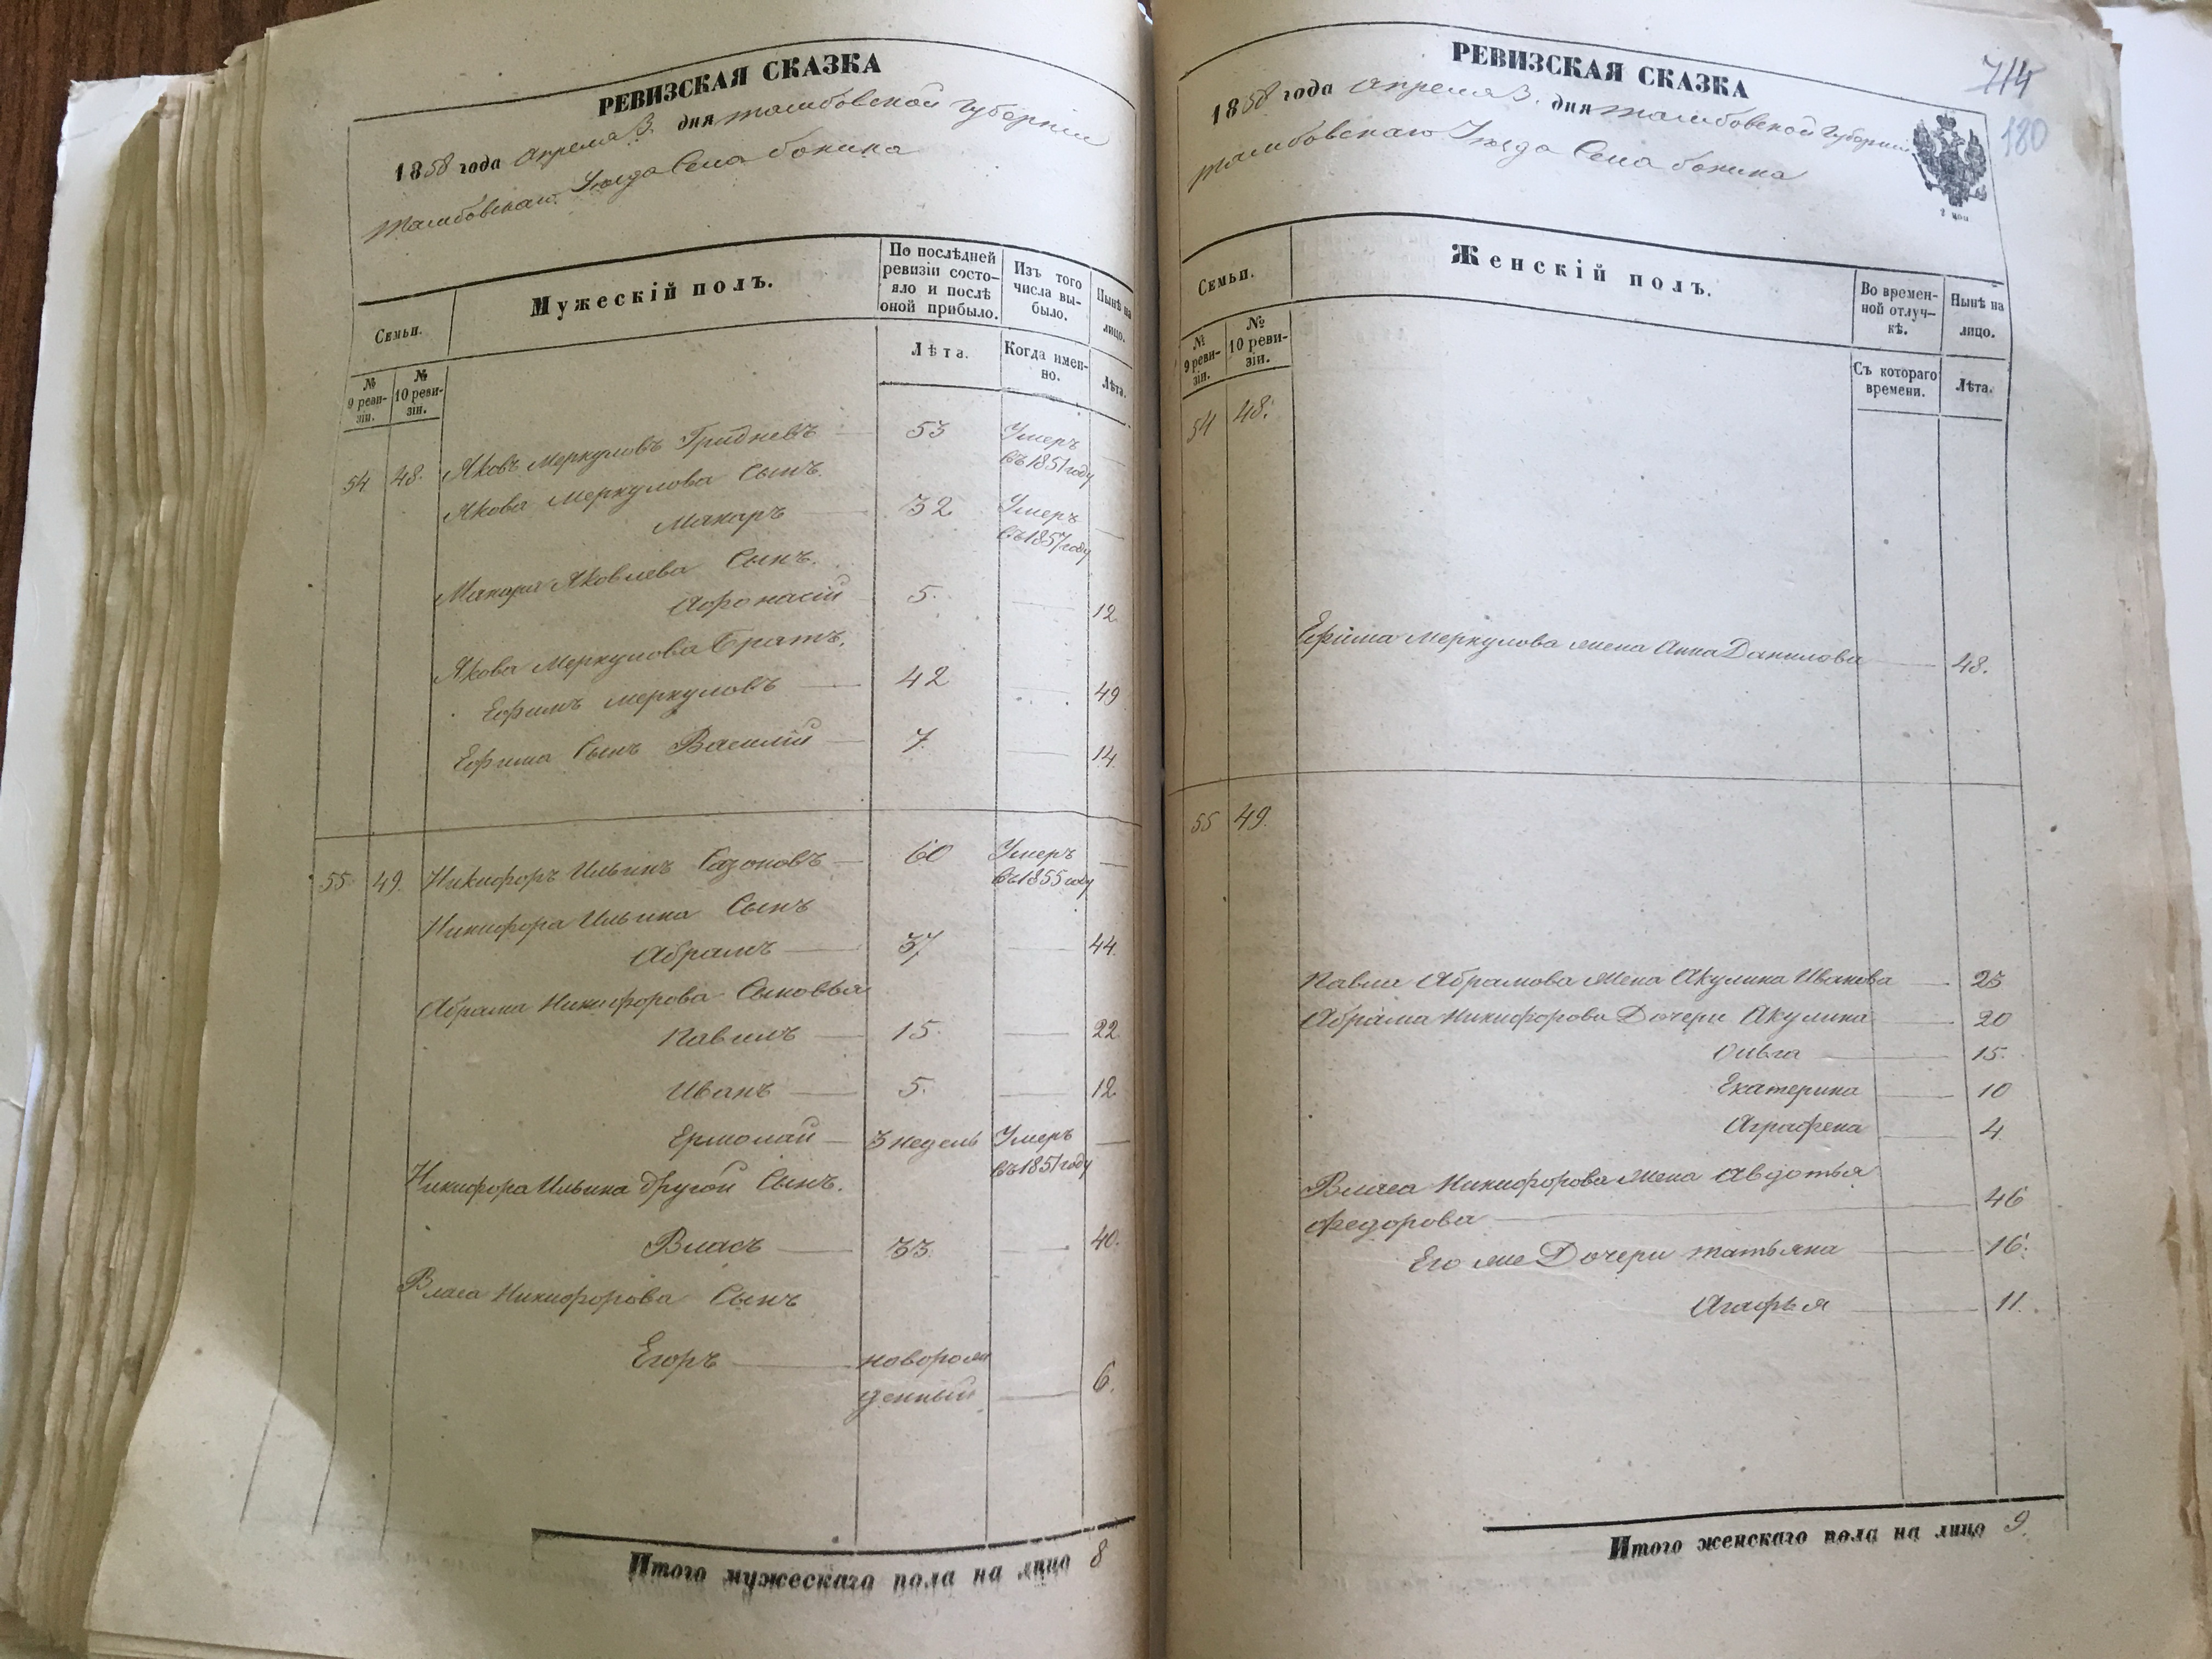 РЕВИЗСКАЯ СКАЗКА
1858 года Апреля 3. дня Тамбовской Губернии
Тамбовскаго Уезда Села Бокина
Семьи.
Мужескій полъ.
По послѣдней ревизіи состо-
яло и послѣ
оной прибыло.
Изъ того
числа вы-
было.
Нынѣ на
лицо.
№
9 реви-
зіи.
№
10 реви-
зіи.
Лѣта.
Когда имен-
но.
Лѣта.
54 48. Яковъ Меркуловъ Гридневъ 53 Умеръ
въ 1851 году
Якова Меркулова Сынъ.
Макаръ 32 Умеръ
въ 1857 году
Макара Яковлева Сынъ.
Афонасій 5. 12
Якова Меркулова Братъ.
Ефимъ Меркуловъ 42 49
Ефима Сынъ Василій 7. 14
55 49. Никифоръ Ильинъ Сазоновъ 60 Умеръ
въ 1855 году
Никифора Ильина Сынъ
Абрамъ 37 44.
Абрама Никифорова Сыновья
Павилъ 15. 22
Иванъ 5. 12
Ермолай 3 недель Умеръ
въ 1851 году
Никифора Ильина другой Сынъ.
Власъ 33. 40.
Власа Никифорова Сынъ
Егоръ новорож
денный 6.
Итого мужескаго пола на лицо 8
РЕВИЗСКАЯ СКАЗКА
714
180
1858 года Апреля 3. дня Тамбовской Губернии
Тамбовскаго Уезда Села Бокина
Семьи.
Женскій полъ.
Во времен-
ной отлуч-
кѣ.
Нынѣ на
лицо.
№
9 реви-
зіи.
№
10 реви-
зіи.
Съ котораго
времени.
Лѣта.
54 48.
Ефима Меркулова жена Анна Данилова 48.
55 49.
Павла Абрамова Жена Акулина Иванова 23
Абрама Никифорова Дочери Акулина 20
Ольга 15.
Екатерина 10
Аграфена 4.
Власа Никифорова Жена Авдотья
Федорова 46
Его же Дочери Татьяна 16.
Агафья 11.
Итого женскаго пола на лицо 9.